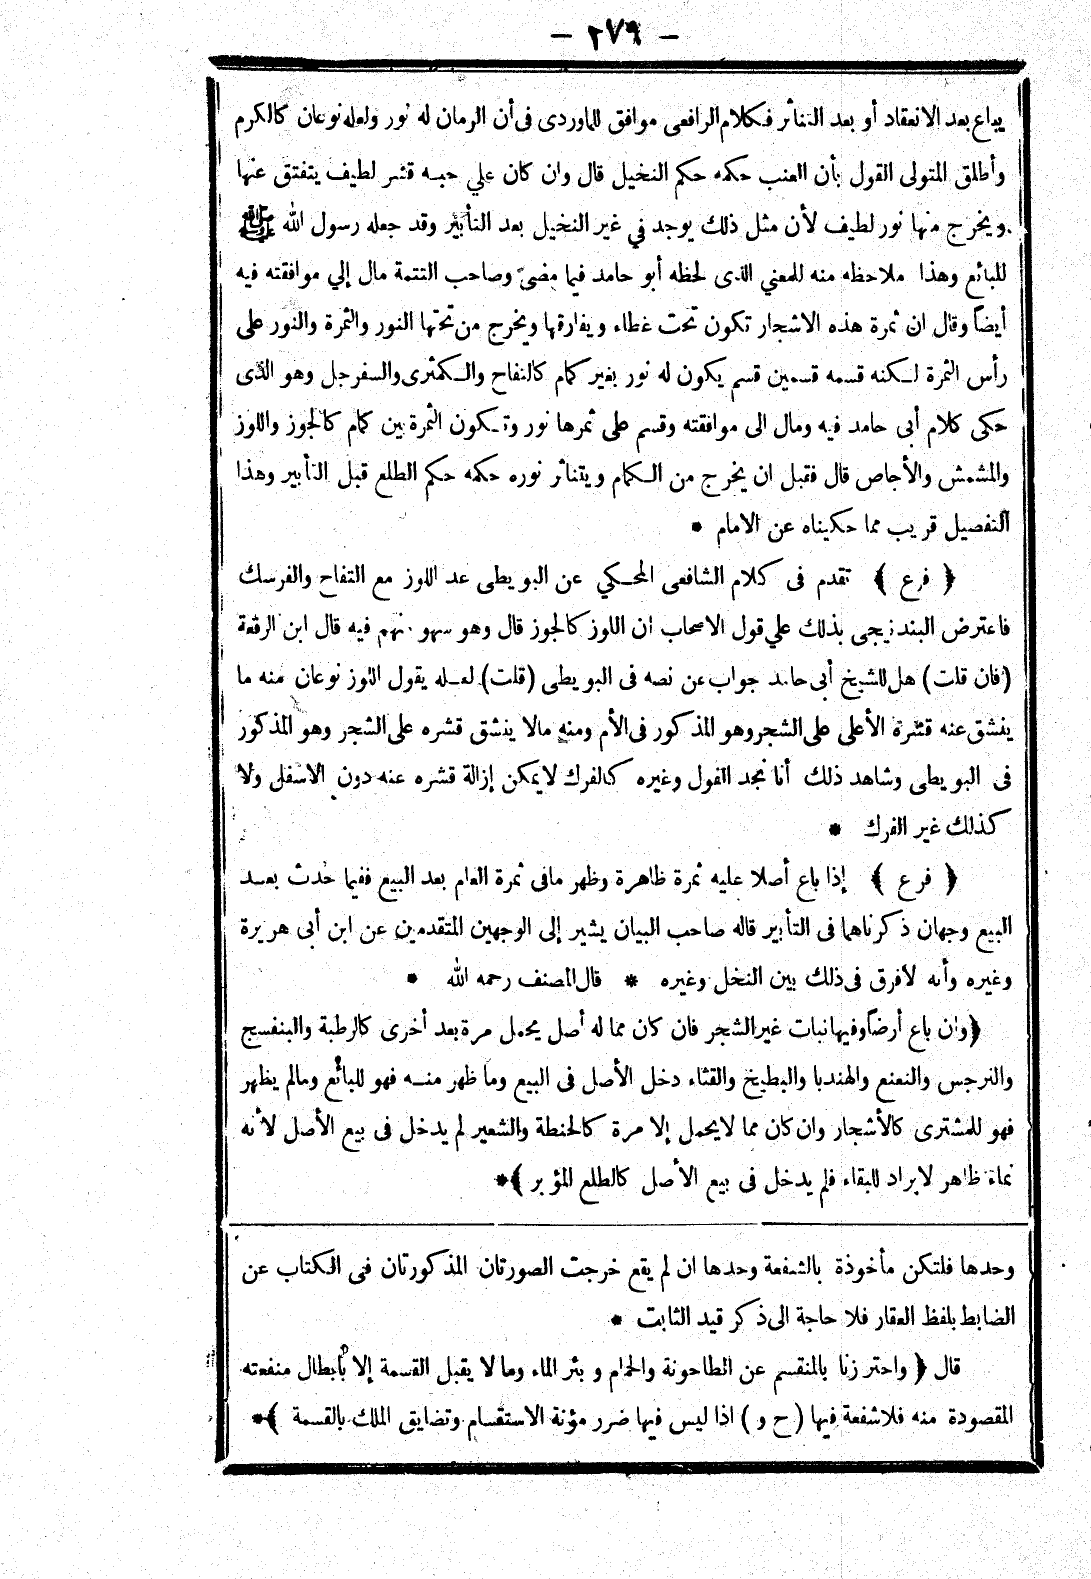 — ٢٧٩ —
يباع بعد الانعقاد أو بعد التناثر فكلام الرافعى موافق للماوردى فى أن الرمان له نور ولعله نوعان كالكرم
وأطلق المتولى القول بأن العنب حكمه حكم النخيل قال وان كان علي حبه قشر لطيف يتفتق عنها
ويخرج منها نور لطيف لأن مثل ذلك يوجد في غير النخيل بعد التأبير وقد جعله رسول الله ﷺ
للبائع وهذا ملاحظه منه للمعني الذى لحظه أبو حامد فيما مضى وصاحب التتمة مال إلي موافقته فيه
أيضاً وقال ان ثمرة هذه الاشجار تكون تحت غطاء ويفارقها ويخرج من تحتها النور والثمرة والنور على
رأس الثمرة لكنه قسمه قسمين قسم يكون له نور بغير كمام كالتفاح والكمثرى والسفرجل وهو الذى
حكى كلام أبى حامد فيه ومال الى موافقته وقسم على ثمرها نور وتكون الثمرة بين كمام كالجوز واللوز
والمشمش والأجاص قال فقبل ان يخرج من الكمام ويتناثر نوره حكمه حكم الطلع قبل التأبير وهذا
التفصيل قريب مما حكيناه عن الامام *
﴿ فرع ﴾ تقدم فى كلام الشافعى المحكي عن البويطى عد اللوز مع التفاح والفرسك
فاعترض البندنيجى بذلك علي قول الاصحاب ان اللوز كالجوز قال وهو سهو منهم فيه قال ابن الرفعة
(فان قلت) هل للشيخ أبى حامد جواب عن نصه فى البويطى (قلت) لعله يقول اللوز نوعان منه ما
ينشق عنه قشرة الأعلى على الشجر وهو المذكور فى الأم ومنه مالا ينشق قشره على الشجر وهو المذكور
فى البويطى وشاهد ذلك أنا نجد الفول وغيره كالفرك لايمكن إزالة قشره عنه دون الاسفل ولا
كذلك غير الفرك *
﴿ فرع ﴾ إذا باع أصلا عليه ثمرة ظاهرة وظهر مافى ثمرة العام بعد البيع ففيما حدث بعد
البيع وجهان ذكرناهما فى التأبير قاله صاحب البيان يشير إلى الوجهين المتقدمين عن ابن أبى هريرة
وغيره وأنه لافرق فى ذلك بين النخل وغيره * قال المصنف رحمه الله *
﴿وان باع أرضاً وفيها نبات غير الشجر فان كان مما له أصل يحمل مرة بعد أخرى كالرطبة والبنفسج
والنرجس والنعنع والهندبا والبطيخ والقثاء دخل الأصل فى البيع وما ظهر منه فهو للبائع ومالم يظهر
فهو للمشترى كالأشجار وان كان مما لايحمل إلا مرة كالحنطة والشعير لم يدخل فى بيع الأصل لأنه
نماء ظاهر لايراد للبقاء فلم يدخل فى بيع الأصل كالطلع المؤبر ﴾*
وحدها فلتكن مأخوذة بالشفعة وحدها ان لم يقع خرجت الصورتان المذكورتان فى الكتاب عن
الضابط بلفظ العقار فلا حاجة الى ذكر قيد الثابت *
قال ﴿ واحترزنا بالمنقسم عن الطاحونة والحمام وبئر الماء وما لا يقبل القسمة إلا بابطال منفعته
المقصودة منه فلا شفعة فيها (ح و) اذا ليس فيها ضرر مؤنة الاستقسام وتضايق الملك بالقسمة ﴾*